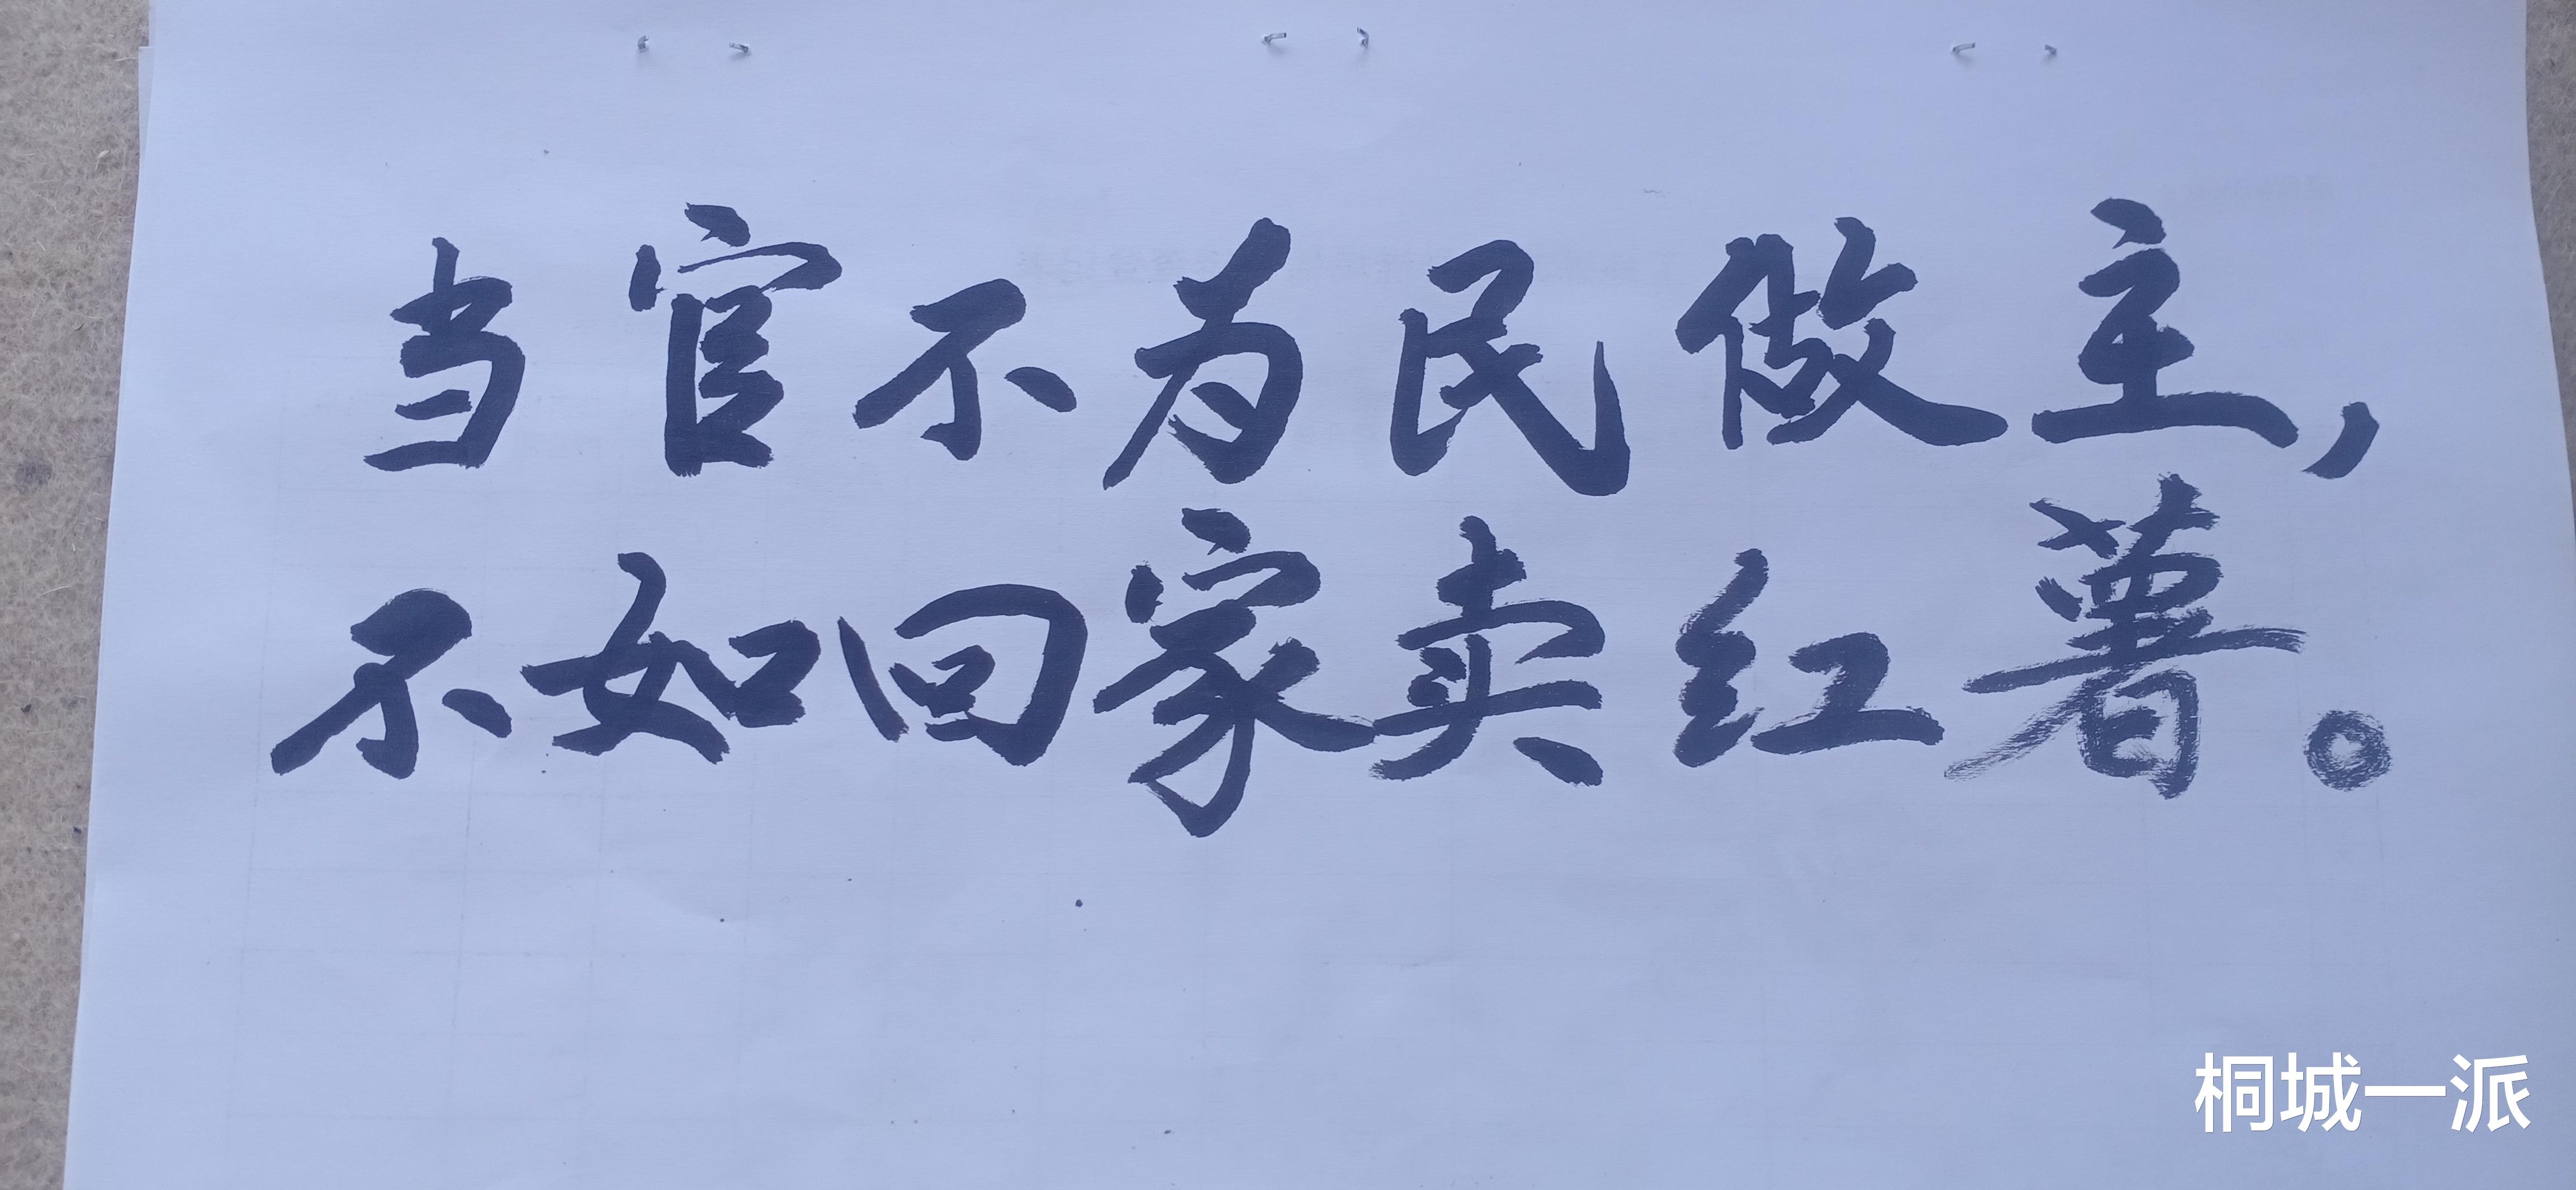 当官不为民做主,
不如回家卖红薯。
桐城一派